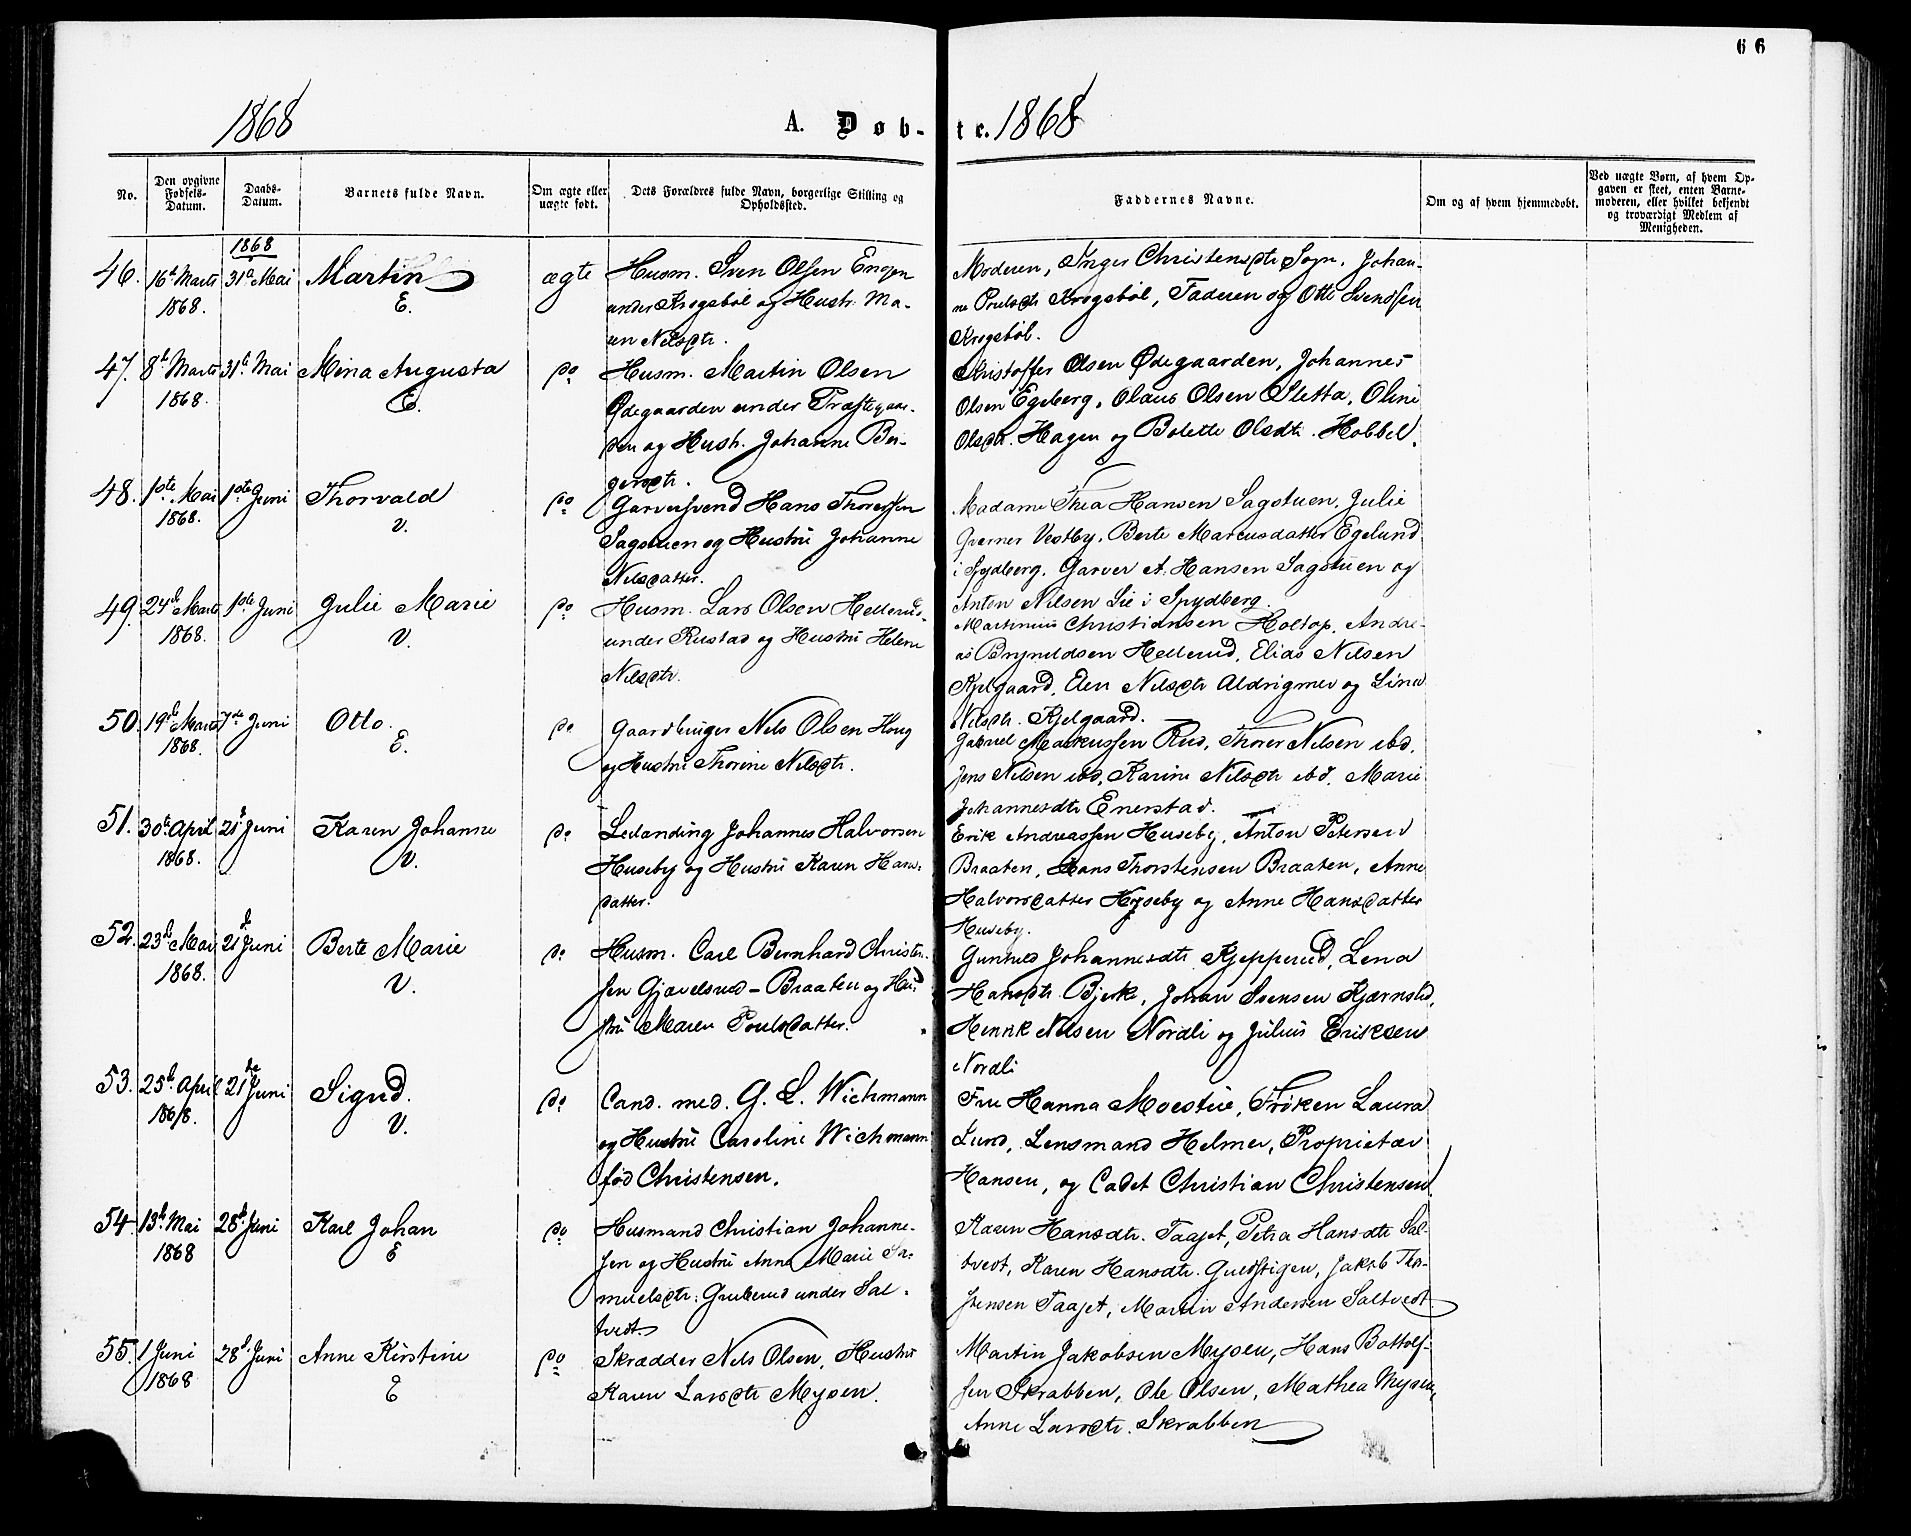 66
1868
A. Døb-te. 1868
No.
Den opgivne Fødsels-Datum.
Daabs-Datum.
Barnets fulde Navn.
Om ægte eller uægte født.
Dets Forældres fulde Navn, borgerlige Stilling og Opholdssted.
Faddernes Navne.
Om og af hvem hjemmedøbt.
Ved uægte Børn, af hvem Op-
gaven er skeet, enten Barne-
moderen, eller hvilket bekjendt
og troværdigt Medlem af
Menigheden.
1868
46. 16d Marts 1868. 31d Mai Martin E. ægte
Husm. Sven Olsen Engen
under Krogsbøl og Hustr. Ma-
ren Nilsdtr.
Moderen, Inger Christensdtr Sogn. Johan-
ne Poulsdtr Krogsbøl, Faderen og Otto Svendsen
Krogsbøl.
47. 8d Marts 1868. 31d Mai Mina Augusta E. do
Husm. Martin Olsen
Ødegaarden under Præstegaar-
den og Hustr. Johanne Bir-
gersdtr.
Kristoffer Olsen Ødegaarden, Johannes
Olsen Egeberg, Olaus Olsen Sletta, Oline
Olsdtr. Hagen og Bolette Olsdtr. Hobbel.
48. 1ste Mai 1868. 1ste Juni Thorvald V. do
Garversvend Hans Thoressen
Sagstuen og Hustru Johanne
Nilsdatter.
Madame Thea Hansen Sagstuen, Julie
Gverner Vestby, Berte Marcusdatter Egelund
i Spydberg. Garver A. Hansen Sagstuen og
Anton Nilsen Lie i Spydberg.
49. 24d Marts 1868. 1ste Juni Julie Marie V. do
Husm. Lars Olsen Hellerud-
under Rustad og Hustru Helene
Nilsdtr.
Martinius Christiansen Holtop, Andre-
as Brynildsen Hellerud, Elias Nilsen
Kjelgaard, Elen Nilsdtr Aldrigmer og Lina
Nilsdtr. Kjelgaard.
50. 19d Marts 1868. 7de Juni Otto. E. do
Gaardbruger Nils Olsen Houg
og Hustru Thorine Nilsdtr.
Gabriel Markussen Rud, Thorer Nilsen ibd.
Jens Nilsen ibd, Karine Nilsdtr ibd, Marie
Johannesdtr Enerstad.
51. 30d April 1868. 21d Juni Karen Johanne V. do
Leilending Johannes Halvorsen
Huseby og Hustru Karen Hans-
datter.
Erik Andreassen Huseby, Anton Petersen
Braaten, Hans Thorstensen Braaten, Anne
Halvorsdatter Huseby og Anne Hansdatter
Huseby.
52. 23d Mai 1868. 21d Juni Berte Marie V. do
Husm. Carl Bernhard Christen-
sen Gjævelsrud-Braaten og Hu-
stru Maren Poulsdatter.
Gunhild Johannesdtr Kjepperud, Lena
Hansdtr Bjerk, Johan Svensen Kjærnslid,
Henrik Nilsen Nordli og Julius Eriksen
Nordli
53. 25d April 1868. 21de Juni Sigrid. V. do
Cand. med. G. L. Wichmann
og Hustru Caroline Wichmann
fød Christensen.
Fru Hanna Moestue, Frøken Laura
Lund, Lensmand Helmer, Proprietær
Hansen, og Cadet Christian Christensen.
54. 13d Mai 1868 28d Juni Karl Johan E do
Husmand Christian Johanne-
sen og Hustru Anne Marie Sa-
muelsdtr: Gruberud under Sal-
tvedt.
Karen Hansdtr. Taajet, Petra Hansdtr Sal-
tvedt, Karen Hansdtr. Guldstigen, Jakob Tho-
stensen Taajet, Martin Andersen Saltvedt.
55. 1 Juni 1868 28d Juni Anne Kirstine E do
Skrædder Nils Olsen, Hustru
Karen Larsdtr Mysen.
Martin Jakobsen Mysen, Hans Bottolf-
sen Skrabben, Ole Olsen, Mathea Mysen,
Anne Larsdtr. Skrabben